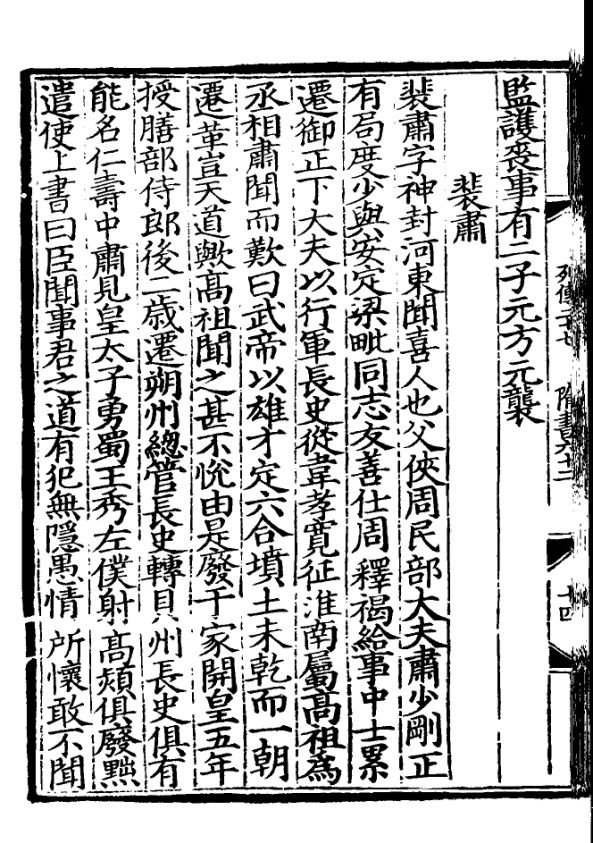 列傳二十七 隋書六十二
十四
監護喪事有二子元方元襲
裴肅
裴肅字神封河東聞喜人也父俠周民部大夫肅少剛正
有局度少與安定梁毗同志友善仕周釋褐給事中士累
遷御正下大夫以行軍長史從韋孝寬征淮南屬高祖爲
丞相肅聞而歎曰武帝以雄才定六合墳土未乾而一朝
遷革豈天道歟高祖聞之甚不悅由是廢于家開皇五年
授膳部侍郎後二歲遷朔州總管長史轉貝州長史俱有
能名仁壽中肅見皇太子勇蜀王秀左僕射高熲俱廢黜
遣使上書曰臣聞事君之道有犯無隱愚情所懷敢不聞